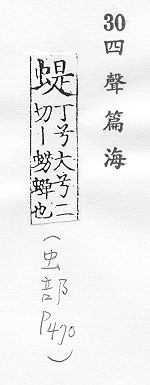 30四聲篇海
蝭
丁兮大兮二
切丨蟧蟬也
(虫部
P470)